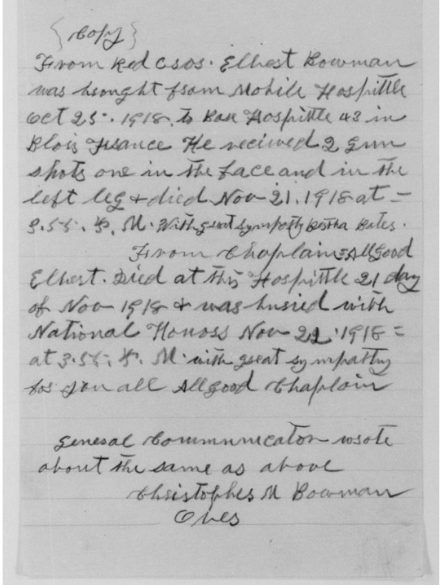 {Copy}
From Red Cross. Elbert Bowman
was brought from Mobile Hospittle
Oct 25. 1918. to Base Hospittle 43 in
Blois France He recived 2 gun
shots one in the face and in the
left leg & died Nov 21. 1918 at =
3.55. P. M. With great sympathy Bertha Bates.
From Chaplain = Allgood
Elbert. Died at this Hospittle 21 day
of Nov 1918 & was buried with
National Honors Nov 22. 1918 =
at 3.55. P. M. with great sympathy
for you all Allgood Chaplain
General Communicator wrote
about the same as above
Christopher M Bowman
Over